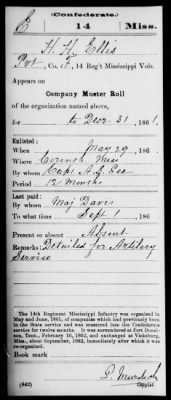 (Confederate.)
E 14 Miss.
H. H. Ellis
Pvt, Co. E, 14 Reg't Mississippi Vols.
Appears on
Company Muster Roll
of the organization named above,
for to Decr. 31, 1861.
Enlisted:
When May 29, 1861.
Where Corinth Miss
By whom Capt A. J.
Period 12 Months
Last paid:
By whom Maj Davis
To what time Sept 1, 186 .
Present or absent Absent
Remarks: Detailed for Artillery
Service
The 14th Regiment Mississippi Infantry was organized in
May and June, 1861, of companies which had previously been
in the State service and was mustered into the Confederate
service for twelve months. It was surrendered at Fort Donel-
son, Tenn., February 16, 1862, and exchanged at Vicksburg,
Miss., about September, 1862, immediately after which it was
reorganized.
Book mark
(642) Copyist.